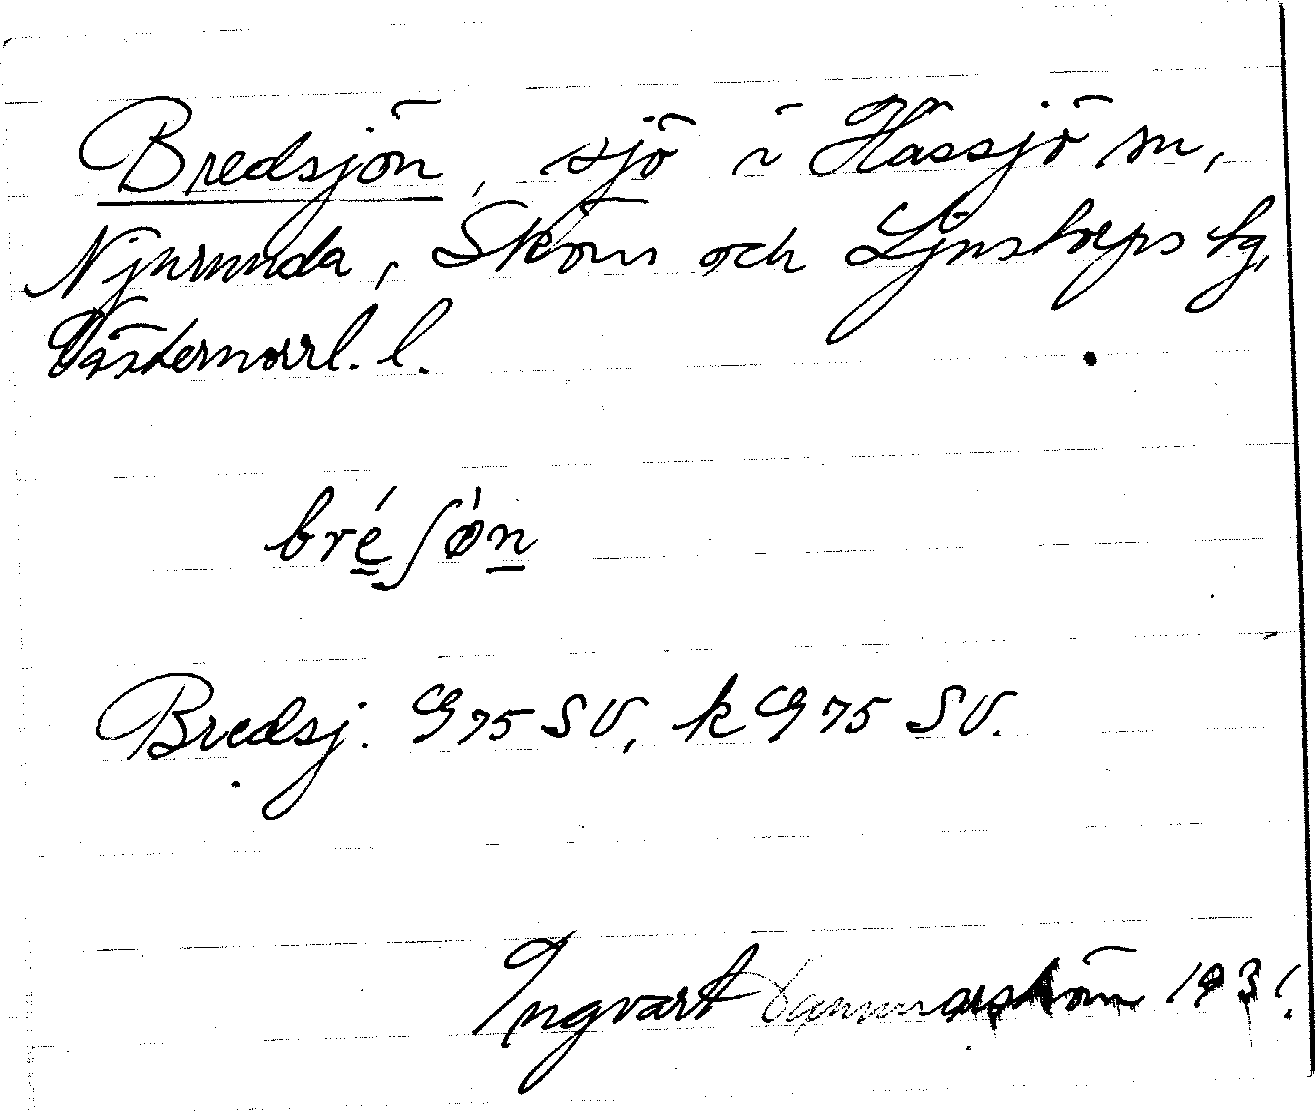 Bredsjön, sjö i Hässjö sn,
Njurunda, Sköns och Ljustorps tg,
Västernorrl. l.
bré̱ʃø̀n̲
Bredsj. G 75 SV, k G 75 SV.
Ingvart 1931.